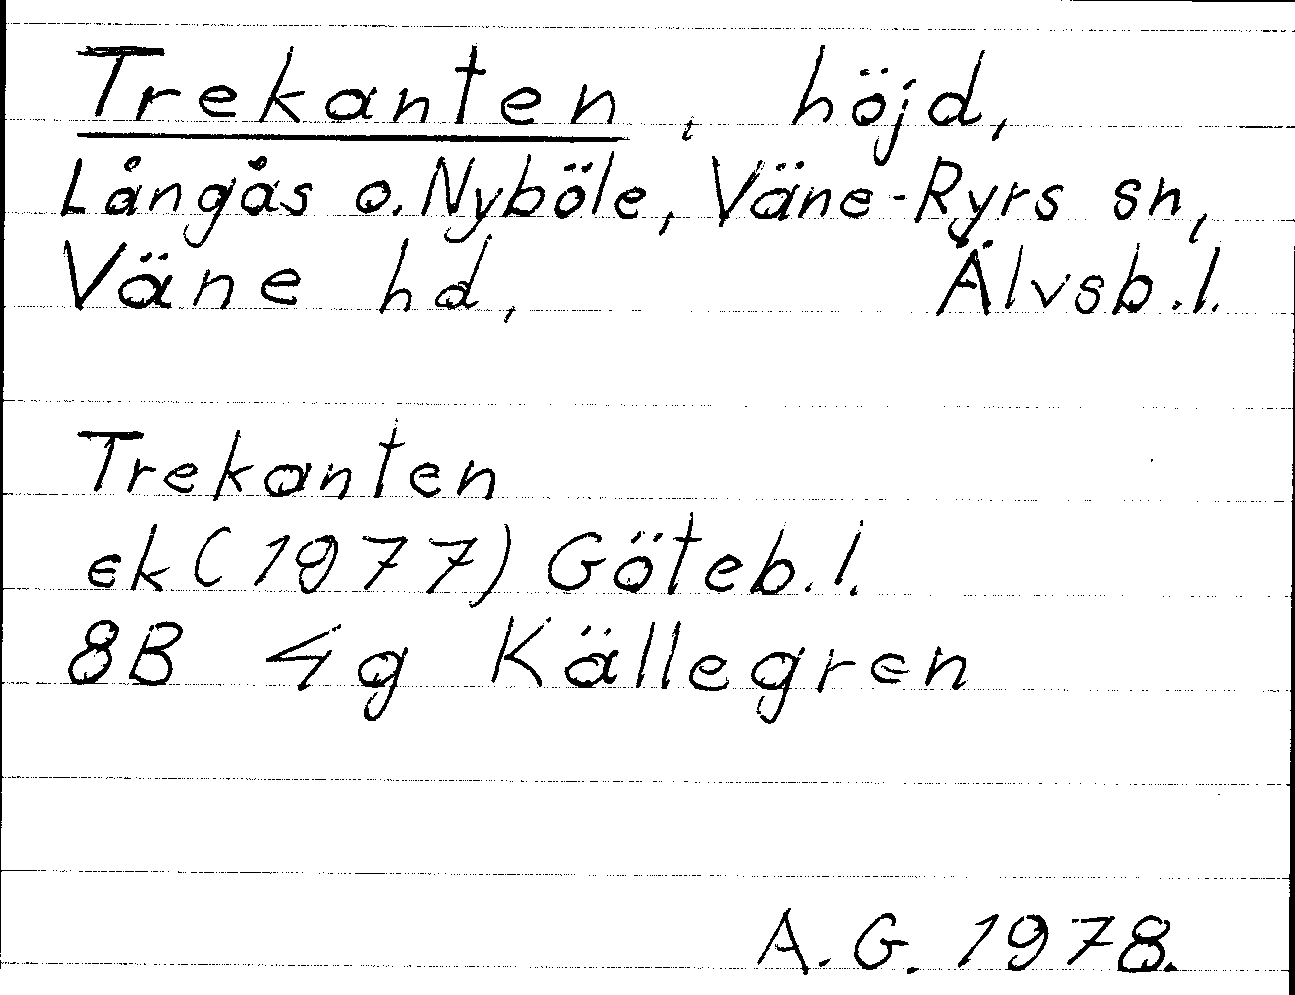 Trekanten, höjd,
Långås o. Nyböle, Väne-Ryrs sn,
Väne hd, Älvsb.l.
Trekanten
ek (1977) Göteb.l.
8B 4g Källegren
A.G. 1978.